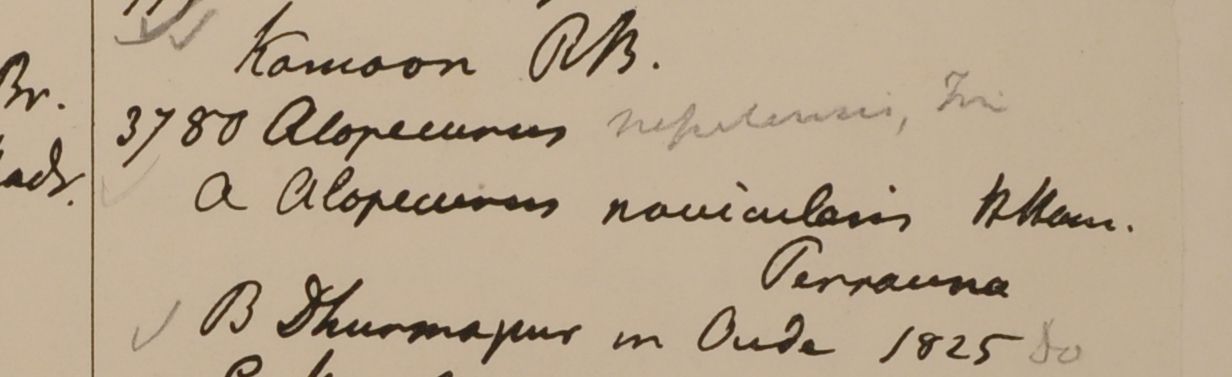 Br.
Kamoon RB.
3780 Alopecurus nepalensis, Tri
A Alopecurus navicularis BHam.
Perrauna
B Dhurmapur in Oude 1825 Do